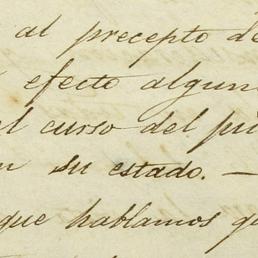 al precepto de
efecto algun
el curso del
su estado. —
que hablamos